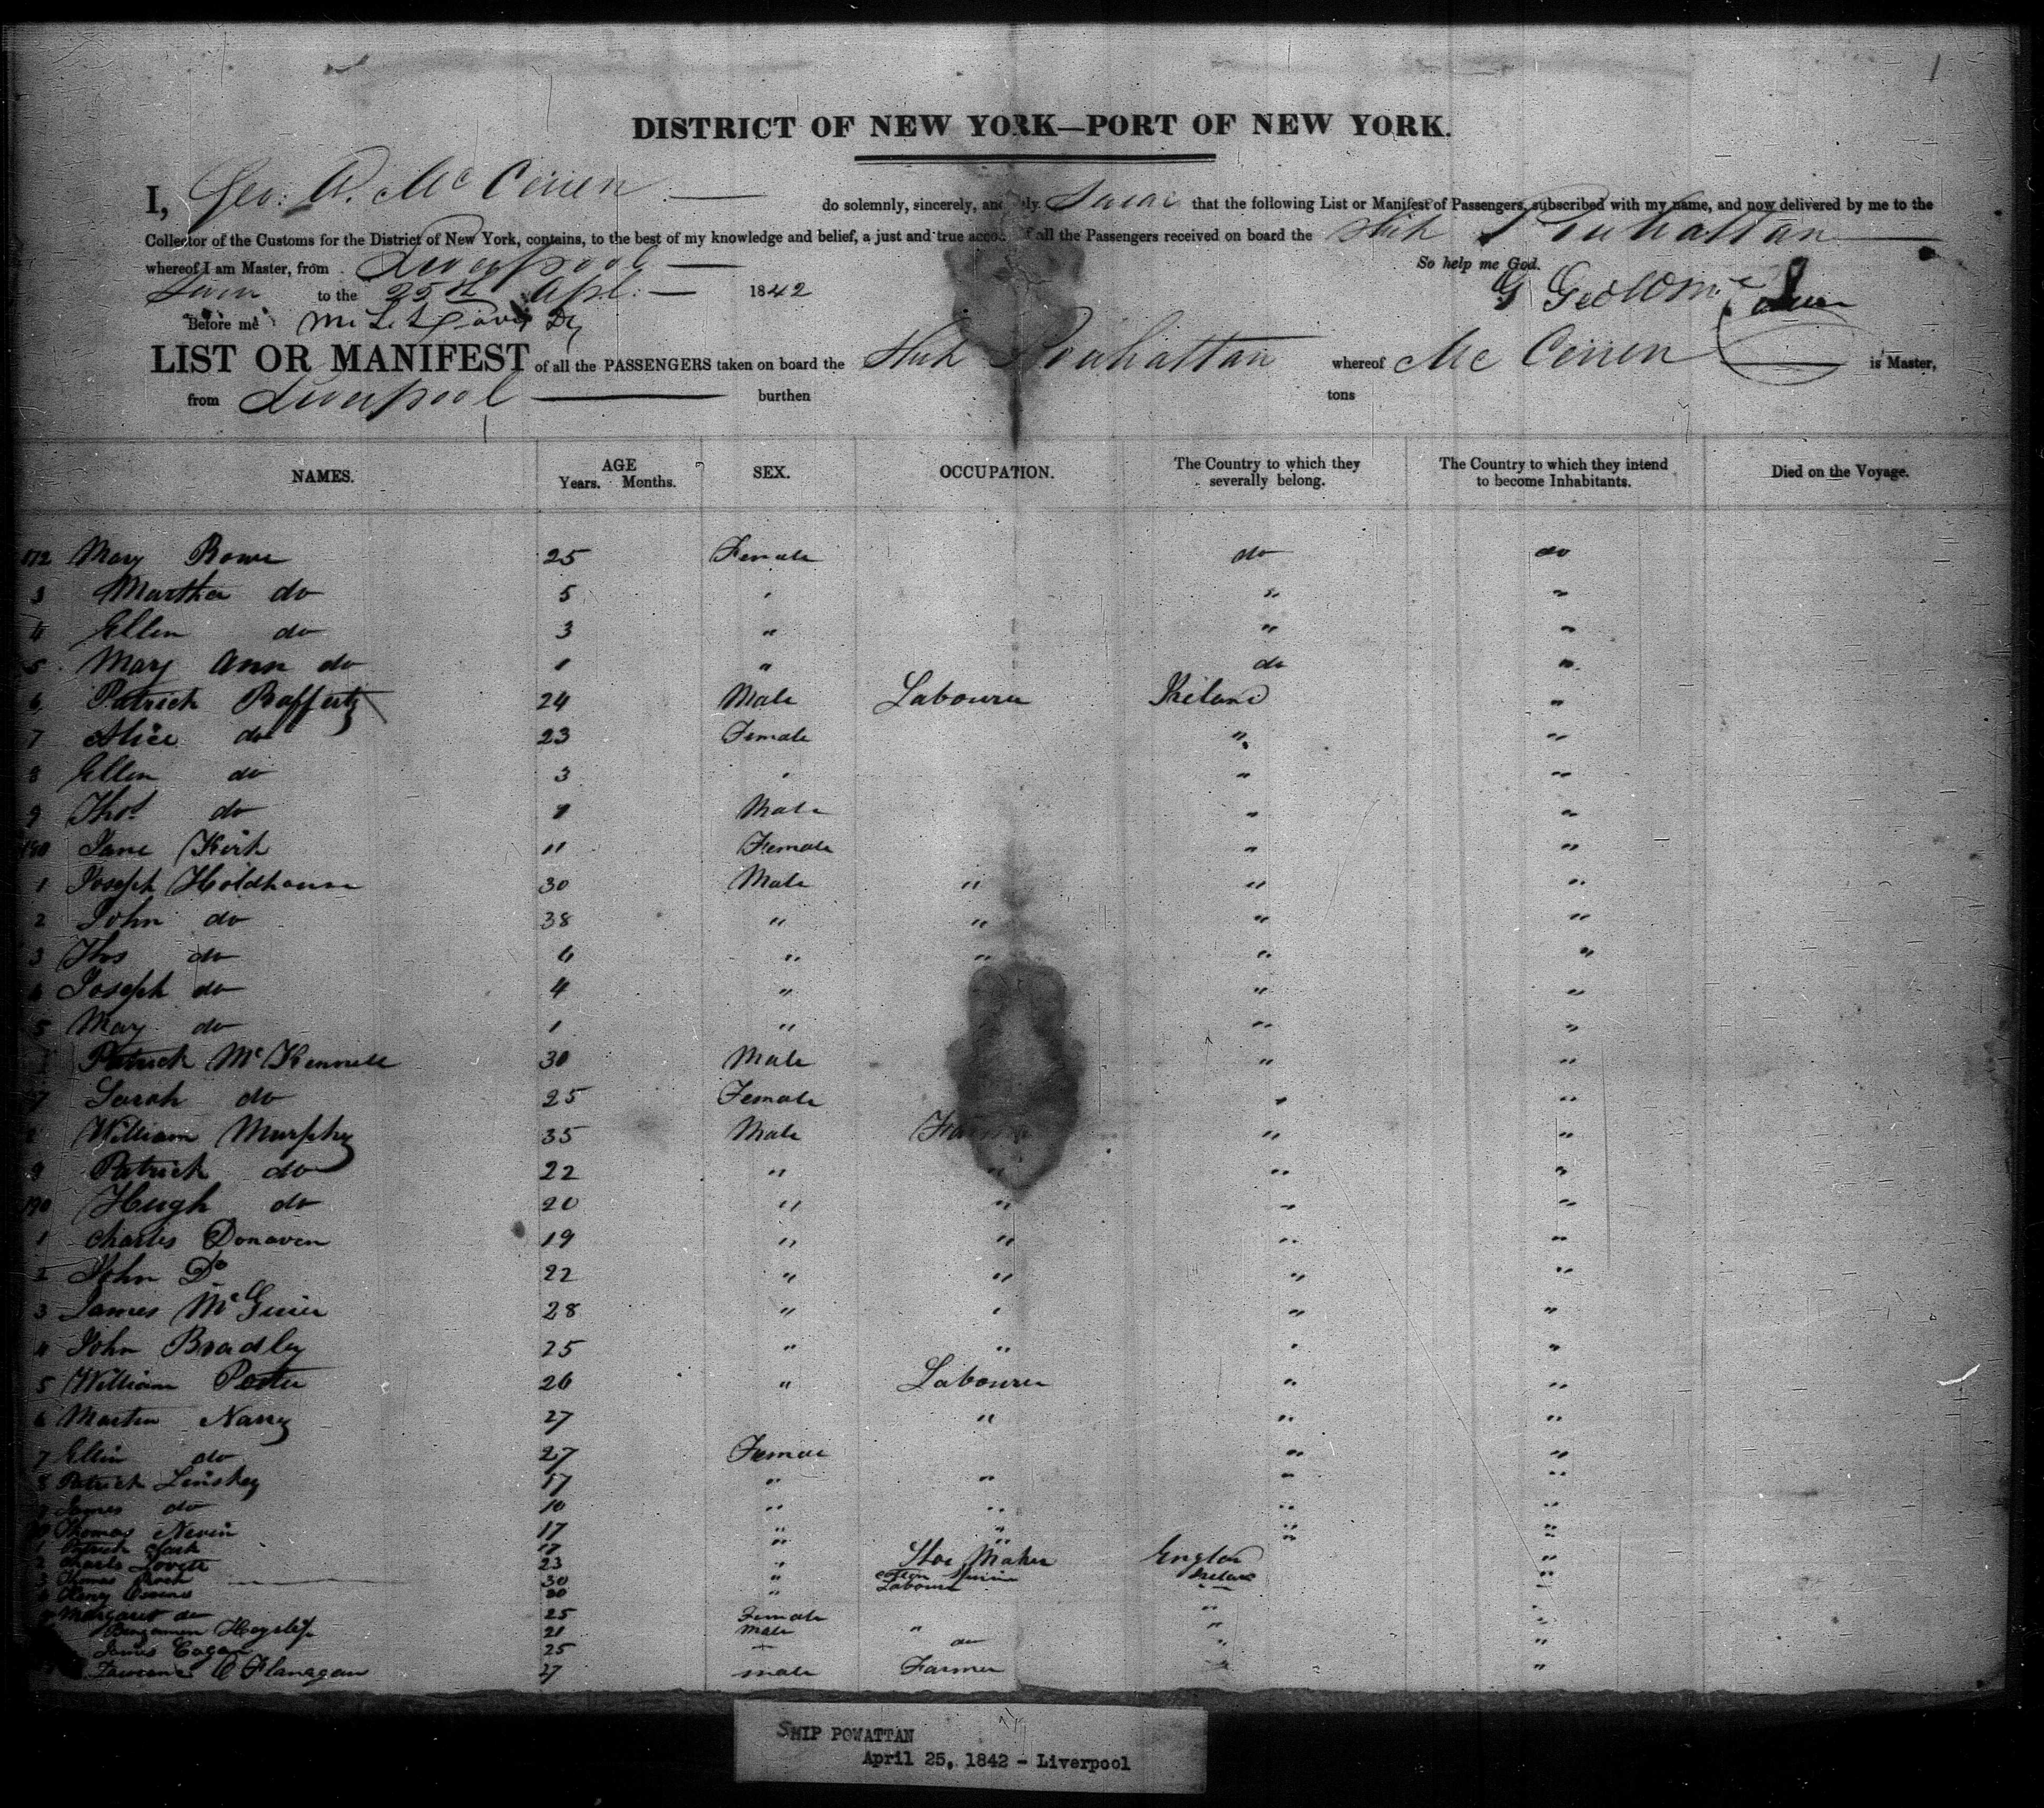 1
DISTRICT OF NEW YORK—PORT OF NEW YORK.
I, Geo: W. Mc Cerren do solemnly, sincerely, and ly Swear that the following List or Manifest of Passengers, subscribed with my name, and now delivered by me to the
Collector of the Customs for the District of New York, contains, to the best of my knowledge and belief, a just and true accou f all the Passengers received on board the Ship Powhattan
whereof I am Master, from Liverpool So help me God.
Sworn to the 25th Apl: 1842
Before me
LIST OR MANIFEST of all the PASSENGERS taken on board the Ship Powhattan whereof Mc Cerren is Master,
from Liverpool burthen tons
NAMES. AGE Years. Months. SEX. OCCUPATION. The Country to which they severally belong. The Country to which they intend to become Inhabitants. Died on the Voyage.
172 Mary Rowe 25 Female do do
3 Martha do 5 " " "
4 Ellen do 3 " " "
5 Mary Ann do 1 " do "
6 Patrick Rafferty 24 Male Labourer Ireland "
7 Alice do 23 Female " "
8 Ellen do 3 " " "
9 Thos do 1 Male " "
180 Jane Kirk 11 Female " "
1 Joseph Holdhouse 30 Male " " "
2 John do 38 " " " "
3 Thos do 6 " " " "
4 Joseph do 4 " " "
5 Mary do 1 " " "
Patrick McKennell 30 Male " "
7 Sarah do 25 Female " "
William Murphy 35 Male Farm " "
9 Patrick do 22 " " " "
190 Hugh do 20 " " " "
1 Charles Donaven 19 " " " "
2 John Do 22 " " " "
3 James McGuier 28 " " " "
4 John Bradley 25 " " " "
5 William Porter 26 " Labourer " "
6 Martin Narry 27 " " "
7 Ellin do 27 Femae " "
8 Patrick Linskey 17 " " " "
9 James do 10 " " " "
Thomas Nevin 17 " " " "
1 Patrick Clark 17 " " " "
2 Charls Lovett 23 " Shoe Maker Englan "
3 Thomas 30 " Cotton Spinner Irelan "
4 Henry 20 " Labourer " "
Margaret do 25 Female " "
Benjamin Heyslip 21 Male " " "
James Cogan 25 do " "
O Flanagan 27 male Farmer "
SHIP POWATTAN
April 25, 1842 - Liverpool